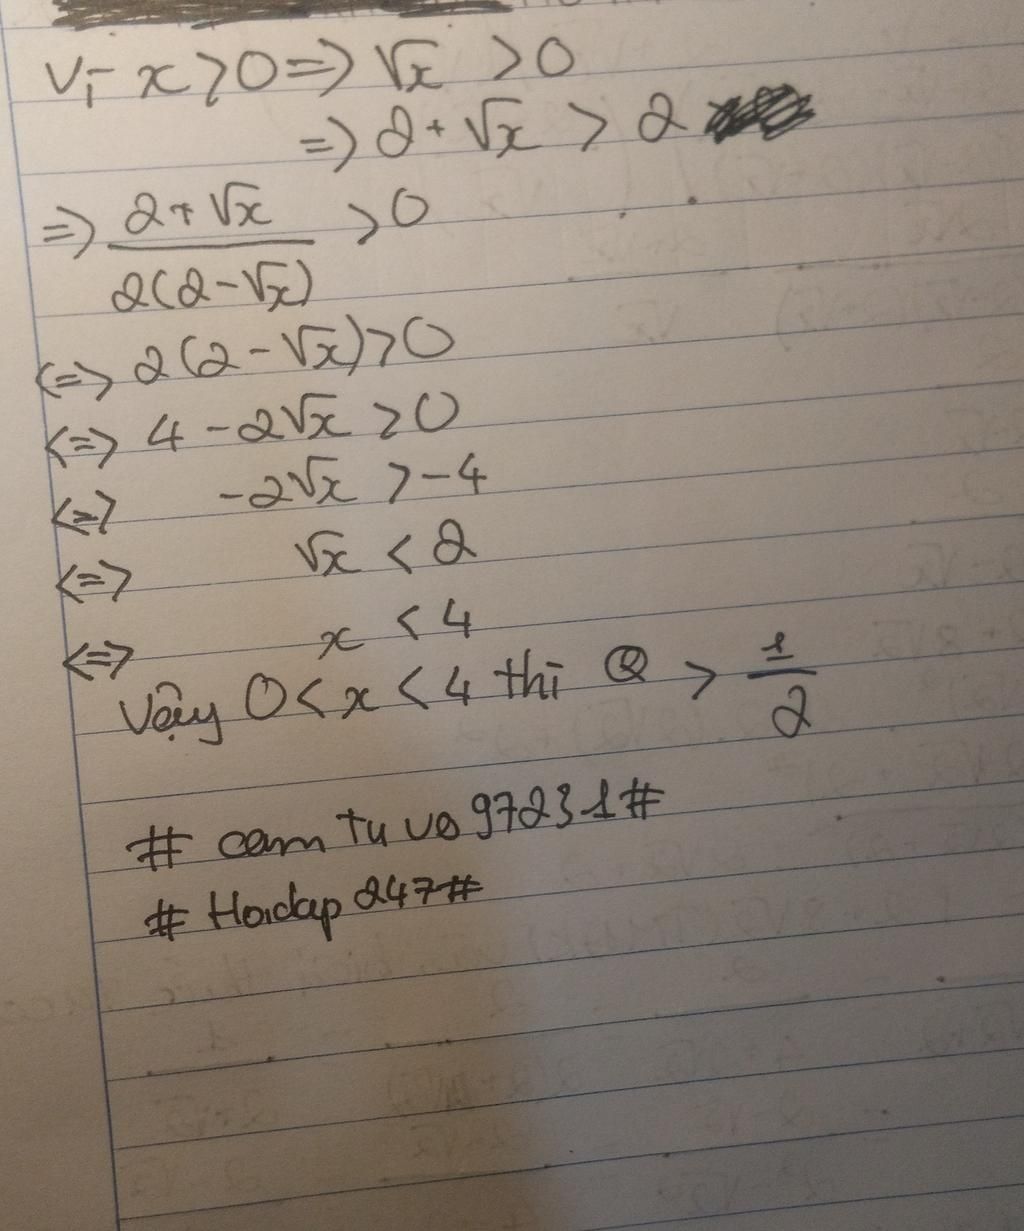 Vì x > 0 => √x > 0
=> 2 + √x > 2
=> (2 + √x)/(2(2 - √x)) > 0
<=> 2(2 - √x) > 0
<=> 4 - 2√x > 0
<=> -2√x > -4
<=> √x < 2
<=> x < 4
Vậy 0 < x < 4 thì Q > 1/2
# cam tu vo 97231#
# Hoidap 247#